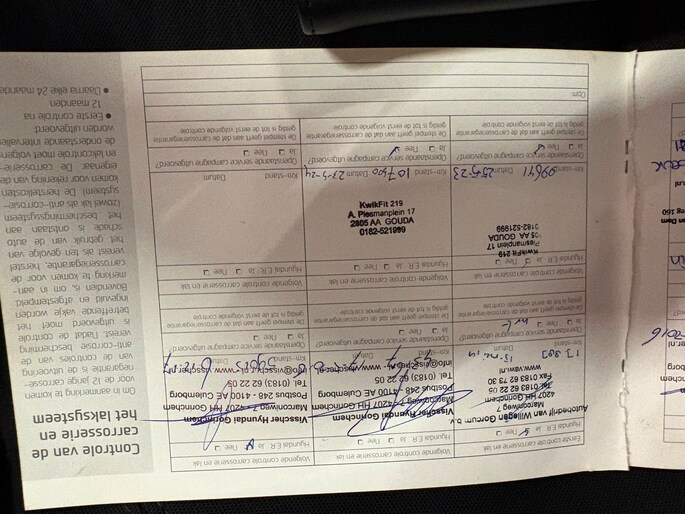 Controle van de
carrosserie en
het laksysteem
Om in aanmerking te komen
voor de 12 jarige carrosse-
riegarantie is de uitvoering
van de controles van de
anti-corrosie bescherming
vereist. Nadat de controle
is uitgevoerd moet het
betreffende vakje worden
ingevuld en afgestempeld.
Bovendien is, om in aan-
merking te komen voor de
carrosseriegarantie, herstel
vereist als ten gevolge van
het gebruik van de auto
schade is ontstaan aan
het beschermingssysteem
(zowel lak als anti-corrosie-
systeem). De herstelkosten
komen voor rekening van de
eigenaar. De carrosserie-
en lakcontrole moet volgens
de onderstaande intervallen
worden uitgevoerd:
● Eerste controle na
12 maanden
● Daarna elke 24 maanden
Eerste controle carrosserie en lak
Hyundai E.R. Ja Nee
Autobedrijf van Willegen Gorcum b.v.
Marconiweg 7
4207 HH Gorinchem
Tel. 0183 62 22 05
Fax 0183 62 73 30
www.vbw.nl
Km-stand Datum
Openstaande service campagne uitgevoerd?
Ja Nee
De stempel geeft aan dat de carrosseriegarantie
geldig is tot de eerst volgende controle
Volgende controle carrosserie en lak
Hyundai E.R. Ja Nee
Visscher Hyundai Gorinchem
Marconiweg 7 - 4207 HH Gorinchem
Postbus 248 - 4100 AE Culemborg
Tel. (0183) 62 22 05
Km-stand Datum
Volgende controle carrosserie en lak
Hyundai E.R. Ja Nee
Openstaande service campagne uitgevoerd?
Visscher Hyundai Gorinchem
Marconiweg 7 - 4207 HH Gorinchem
Postbus 248 - 4100 AE Culemborg
Tel. (0183) 62 22 05
Km-stand Datum
Ja Nee
De stempel geeft aan dat de carrosseriegarantie
geldig is tot de eerst volgende controle
Volgende controle carrosserie en lak
Hyundai E.R. Ja Nee
KwikFit 219
Plesmanplein 17
AA GOUDA
0182-521999
Km-stand 99641 Datum 25-5-23
Openstaande service campagne uitgevoerd?
Ja Nee
De stempel geeft aan dat de carrosseriegarantie
geldig is tot de eerst volgende controle
Volgende controle carrosserie en lak
Hyundai E.R. Ja Nee
KwikFit 219
A. Plesmanplein 17
2805 AA GOUDA
0182-521999
Km-stand 107500 Datum 23-5-24
Openstaande service campagne uitgevoerd?
Ja Nee
De stempel geeft aan dat de carrosseriegarantie
geldig is tot de eerst volgende controle
Volgende controle carrosserie en lak
Hyundai E.R. Ja Nee
Km-stand Datum
Openstaande service campagne uitgevoerd?
Ja Nee
De stempel geeft aan dat de carrosseriegarantie
geldig is tot de eerst volgende controle